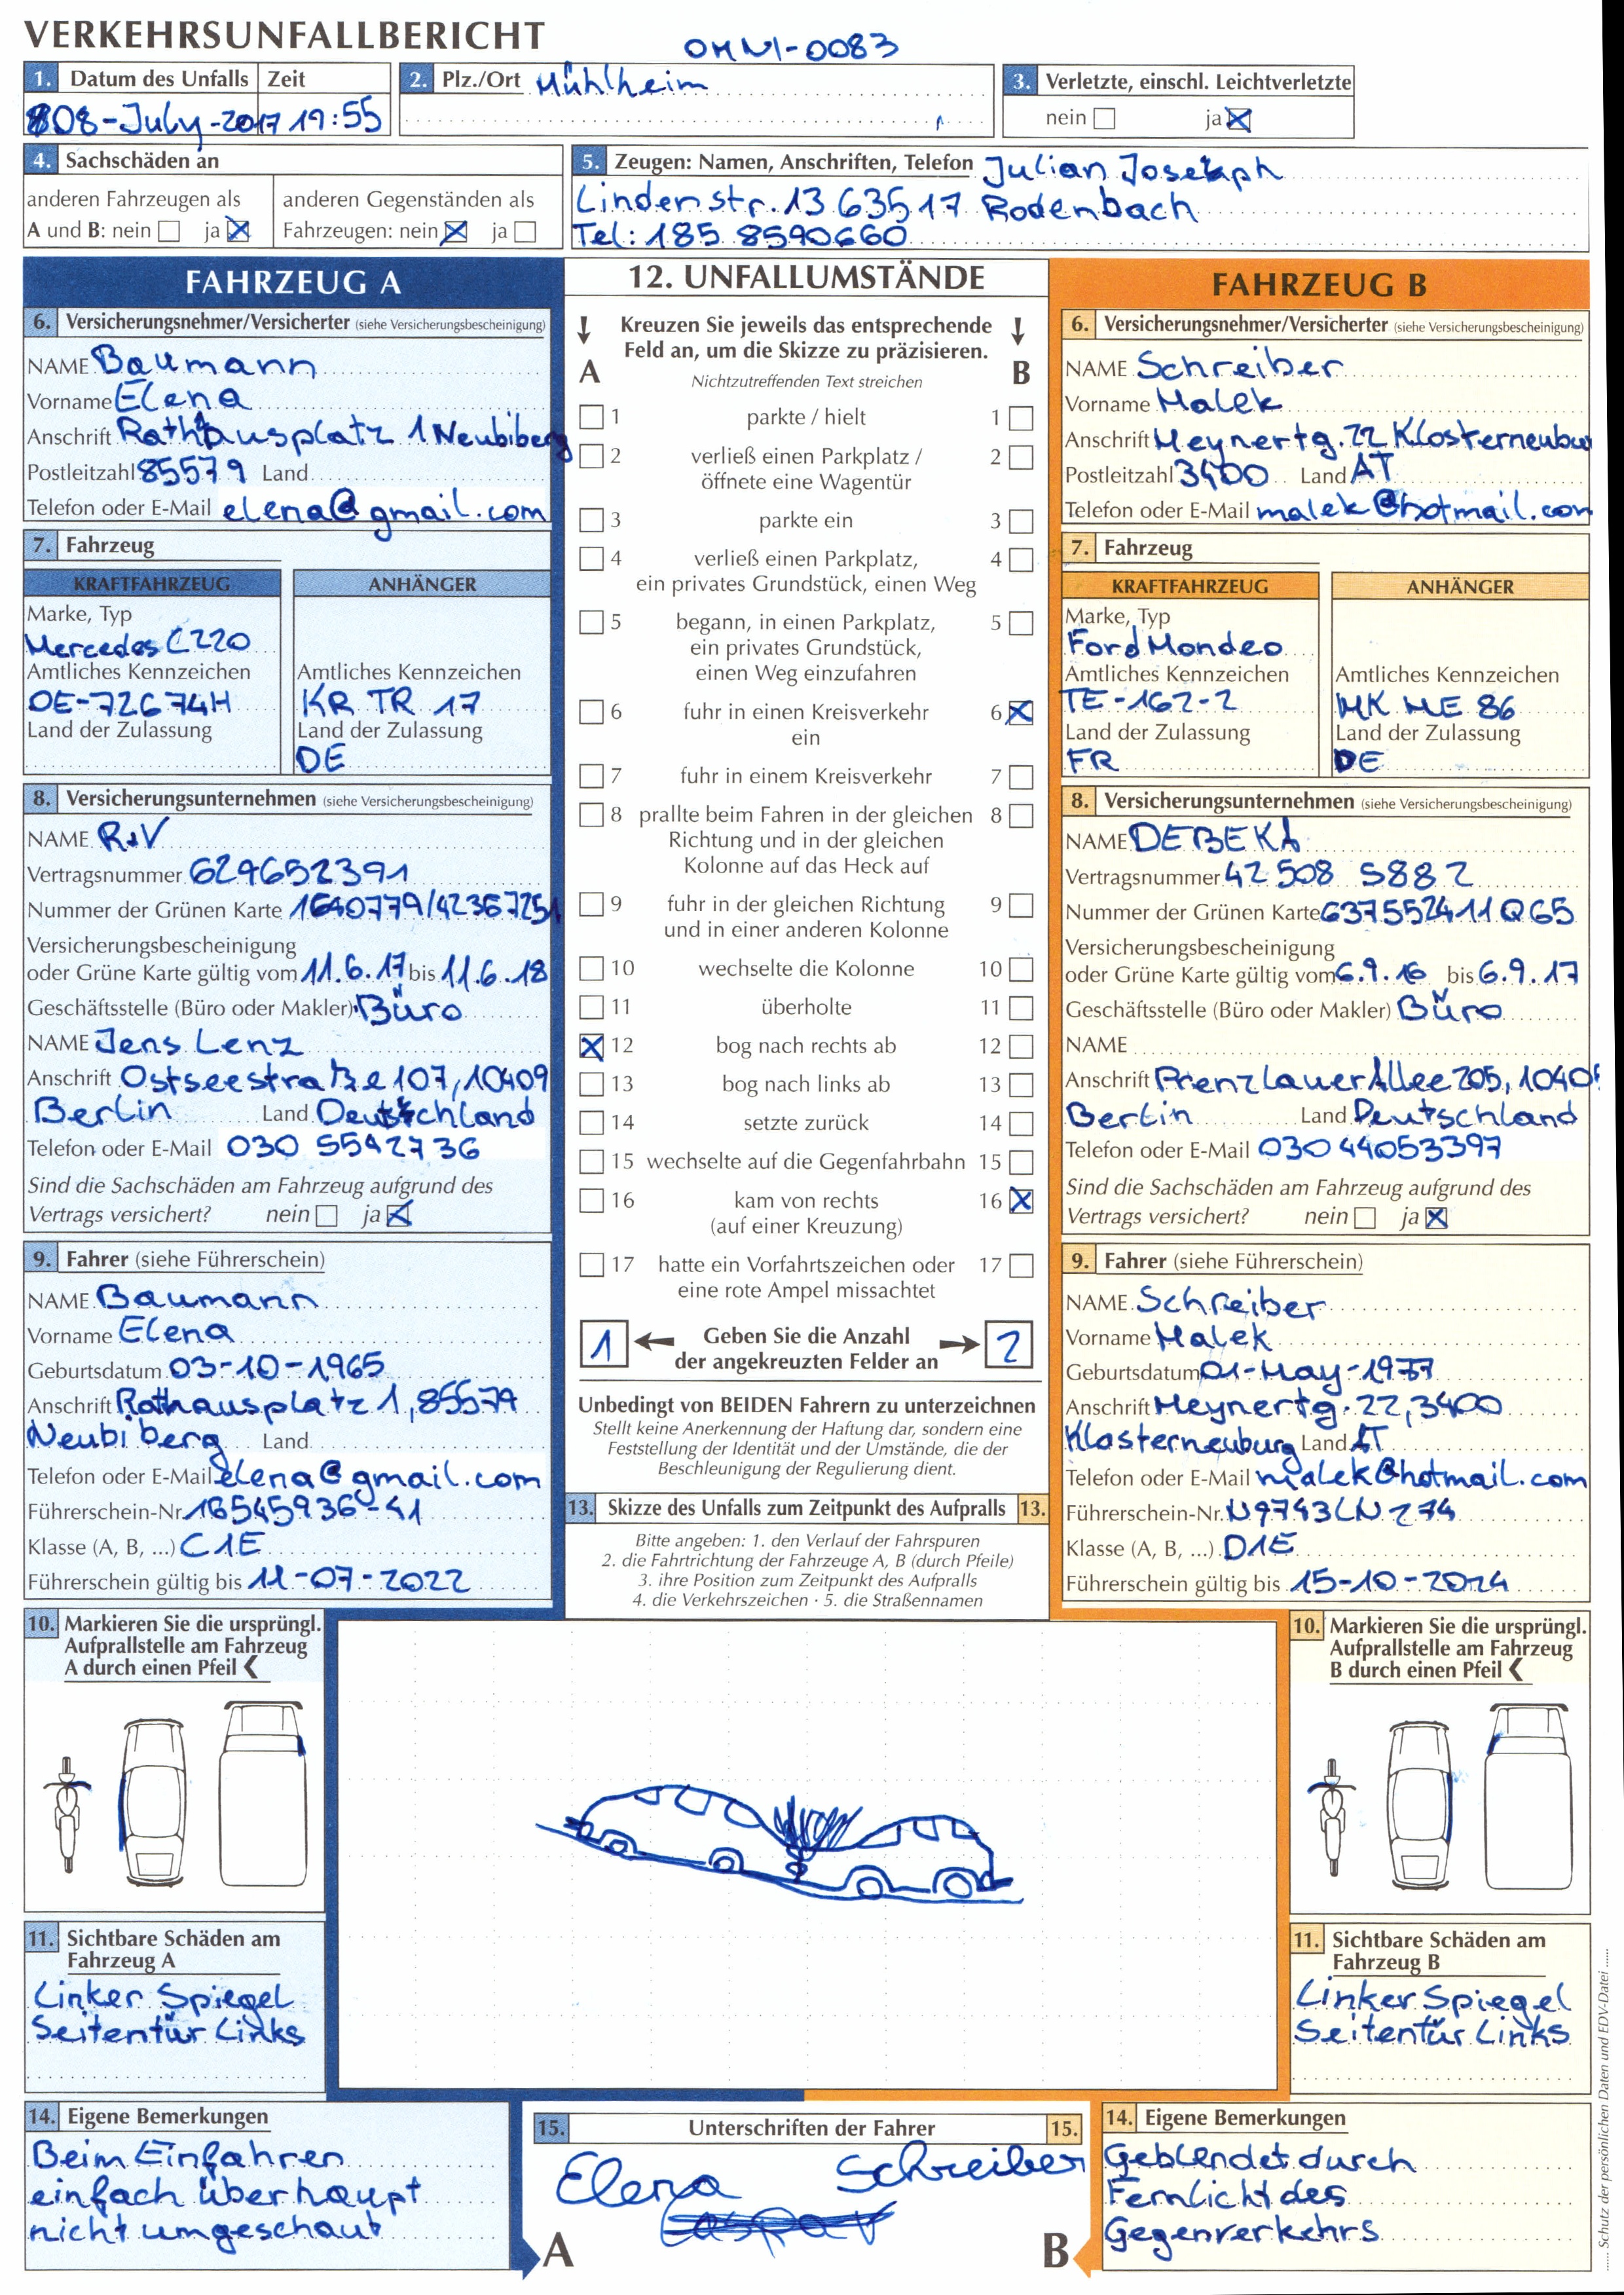 VERKEHRSUNFALLBERICHT
OMNI-0083
1. Datum des Unfalls Zeit
08-July-2017 19:55
2. Plz./Ort Mühlheim
3. Verletzte, einschl. Leichtverletzte
nein ja
4. Sachschäden an
anderen Fahrzeugen als
A und B: nein ja
anderen Gegenständen als
Fahrzeugen: nein ja
5. Zeugen: Namen, Anschriften, Telefon Julian
Lindenstr. 13 63517 Rodenbach
Tel: 185 8590660
FAHRZEUG A
6. Versicherungsnehmer/Versicherter (siehe Versicherungsbescheinigung)
NAME Baumann
Vorname Elena
Anschrift Rathausplatz 1 Neubiberg
Postleitzahl 85579 Land
Telefon oder E-Mail elena@gmail.com
7. Fahrzeug
KRAFTFAHRZEUG
Marke, Typ
Mercedes C220
Amtliches Kennzeichen
OE-72674H
Land der Zulassung
ANHÄNGER
Amtliches Kennzeichen
KR TR 17
Land der Zulassung
DE
8. Versicherungsunternehmen (siehe Versicherungsbescheinigung)
NAME R+V
Vertragsnummer 629652391
Nummer der Grünen Karte 1640779/42367251
Versicherungsbescheinigung
oder Grüne Karte gültig vom 11.6.17 bis 11.6.18
Geschäftsstelle (Büro oder Makler) Büro
NAME Jens Lenz
Anschrift Ostseestraße 107, 10409
Berlin Land Deutschland
Telefon oder E-Mail 030 5542736
Sind die Sachschäden am Fahrzeug aufgrund des
Vertrags versichert? nein ja
9. Fahrer (siehe Führerschein)
NAME Baumann
Vorname Elena
Geburtsdatum 03-10-1965
Anschrift Rathausplatz 1, 85579
Neubiberg Land
Telefon oder E-Mail elena@gmail.com
Führerschein-Nr. 16545936-41
Klasse (A, B, ...) C1E
Führerschein gültig bis 11-07-2022
10. Markieren Sie die ursprüngl.
Aufprallstelle am Fahrzeug
A durch einen Pfeil
11. Sichtbare Schäden am
Fahrzeug A
Linker Spiegel
Seitentür Links
14. Eigene Bemerkungen
Beim Einfahren
einfach überhaupt
nicht umgeschaut
12. UNFALLUMSTÄNDE
Kreuzen Sie jeweils das entsprechende
Feld an, um die Skizze zu präzisieren.
A Nichtzutreffenden Text streichen B
1 parkte / hielt 1
2 verließ einen Parkplatz / 2
öffnete eine Wagentür
3 parkte ein 3
4 verließ einen Parkplatz, 4
ein privates Grundstück, einen Weg
5 begann, in einen Parkplatz, 5
ein privates Grundstück,
einen Weg einzufahren
6 fuhr in einen Kreisverkehr 6
ein
7 fuhr in einem Kreisverkehr 7
8 prallte beim Fahren in der gleichen 8
Richtung und in der gleichen
Kolonne auf das Heck auf
9 fuhr in der gleichen Richtung 9
und in einer anderen Kolonne
10 wechselte die Kolonne 10
11 überholte 11
12 bog nach rechts ab 12
13 bog nach links ab 13
14 setzte zurück 14
15 wechselte auf die Gegenfahrbahn 15
16 kam von rechts 16
(auf einer Kreuzung)
17 hatte ein Vorfahrtszeichen oder 17
eine rote Ampel missachtet
1 Geben Sie die Anzahl 2
der angekreuzten Felder an
Unbedingt von BEIDEN Fahrern zu unterzeichnen
Stellt keine Anerkennung der Haftung dar, sondern eine
Feststellung der Identität und der Umstände, die der
Beschleunigung der Regulierung dient.
13. Skizze des Unfalls zum Zeitpunkt des Aufpralls 13.
Bitte angeben: 1. den Verlauf der Fahrspuren
2. die Fahrtrichtung der Fahrzeuge A, B (durch Pfeile)
3. ihre Position zum Zeitpunkt des Aufpralls
4. die Verkehrszeichen · 5. die Straßennamen
15. Unterschriften der Fahrer 15.
Elena Schreiber
A B
FAHRZEUG B
6. Versicherungsnehmer/Versicherter (siehe Versicherungsbescheinigung)
NAME Schreiber
Vorname Malek
Anschrift Meynertg. 22 Klosterneubu
Postleitzahl 3400 Land AT
Telefon oder E-Mail malek@hotmail.com
7. Fahrzeug
KRAFTFAHRZEUG
Marke, Typ
Ford Mondeo
Amtliches Kennzeichen
TE-162-2
Land der Zulassung
FR
ANHÄNGER
Amtliches Kennzeichen
MK ME 86
Land der Zulassung
DE
8. Versicherungsunternehmen (siehe Versicherungsbescheinigung)
NAME DEBEKA
Vertragsnummer 42 508 S882
Nummer der Grünen Karte 637552411Q65
Versicherungsbescheinigung
oder Grüne Karte gültig vom 6.9.16 bis 6.9.17
Geschäftsstelle (Büro oder Makler) Büro
NAME
Anschrift Prenzlauer Allee 205, 1040
Berlin Land Deutschland
Telefon oder E-Mail 030 44053397
Sind die Sachschäden am Fahrzeug aufgrund des
Vertrags versichert? nein ja
9. Fahrer (siehe Führerschein)
NAME Schreiber
Vorname Malek
Geburtsdatum 01-May-1977
Anschrift Meynertg. 22, 3400
Klosterneuburg Land AT
Telefon oder E-Mail malek@hotmail.com
Führerschein-Nr. N9743LN274
Klasse (A, B, ...) D1E
Führerschein gültig bis 15-10-2024
10. Markieren Sie die ursprüngl.
Aufprallstelle am Fahrzeug
B durch einen Pfeil
11. Sichtbare Schäden am
Fahrzeug B
Linker Spiegel
Seitentür Links
14. Eigene Bemerkungen
Geblendet durch
Fernlicht des
Gegenverkehrs
Schutz der persönlichen Daten und EDV-Datei